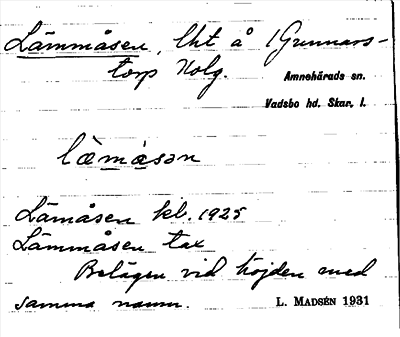 Lämmåsen, lht å 1 Gunnars-
torp Holg.
Amnehärads sn.
Vadsbo hd. Skar. l.
lä̀mǻsən
Låmåsen kl. 1925
Lämmåsen tax
Belägen vid höjden med
samma namn.
L. MADSÉN 1931